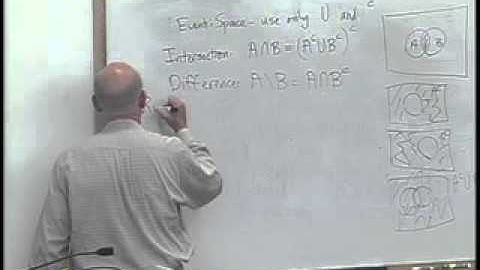 Event Space - use only U and c
Intersection: A∩B = (Aᶜ∪Bᶜ)ᶜ
Difference: A\B = A∩Bᶜ
A B